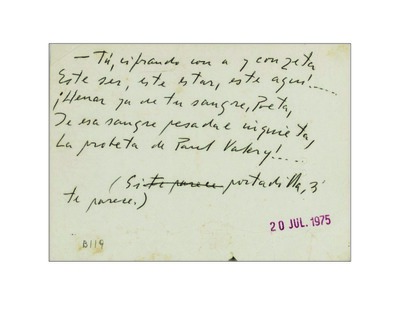 — Tú, cifrando con a y con zeta
Este ser, este estar, este aquí!.....
¡Llenar ya de tu sangre, Poeta,
De esa sangre pesada e inquieta,
La probeta de Paul Valery!....
(Si te parece portadilla, si
te parece.)
20 JUL. 1975
B119